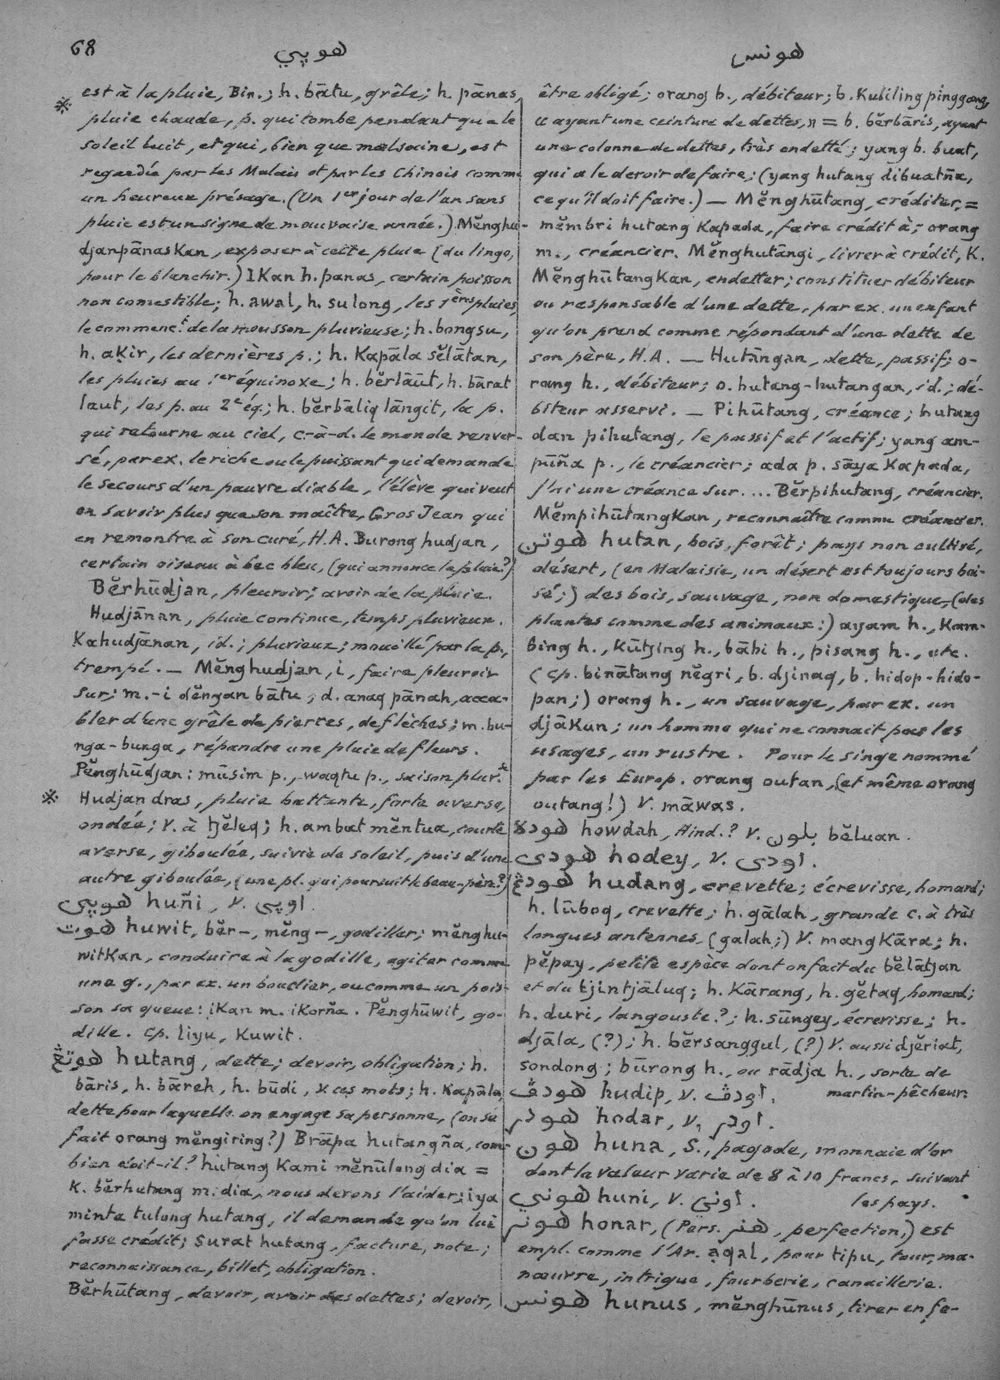 68
هوڽي
هونس
est à la pluie, Bin.; h. bātu, grêle; h. pānas,
pluie chaude, p. qui tombe pendant que le
soleil luit, et qui, bien que malsaine, est
regardée par les Malais et par les Chinois comme
un heureux présage. (Un 1er jour de l'an sans
pluie est un signe de mauvaise année.) Mĕnghu-
djanpānaskan, exposer à cette pluie (du linge,
pour le blanchir.) Ikan h. panas, certain poisson
non comestible; h. awal, h. sulong, les 1ères pluies,
le commenct de la mousson pluvieuse; h. bongsu,
h. aḵir, les dernières p.; h. Kapāla sĕlātan,
les pluies au 1er équinoxe; h. bĕrlāūt, h. bārat
laut, les p. au 2e éq.; h. bĕrbāliq lāngit, la p.
qui retourne au ciel, c-à-d. le monde renver-
sé, par ex. le riche ou le puissant qui demande
le secours d'un pauvre diable, l'élève qui veut
en savoir plus que son maître, Gros Jean qui
en remontre à son curé, H.A. Burong hudjan,
certain oiseau à bec bleu, (qui annonce la pluie?)
Bĕrhūdjan, pleuvoir; avoir de la pluie.
Hudjānan, pluie continue, temps pluvieux.
Kahudjānan, id.; pluvieux; mouillé par la p.,
trempé. — Mĕnghudjan, i, faire pleuvoir
sur; m.-i dĕngan bātu, d. anaq pānah, acca-
bler d'une grêle de pierres, de flèches; m. bu-
nga-bunga, répandre une pluie de fleurs.
Pĕnghūdjan: mūsim p., waqtu p., saison pluv.se
Hudjan dras, pluie battante, forte averse,
ondée; V. à tjĕleq; h. ambat mĕntua, courte
averse, giboulée, suivie de soleil, puis d'une
autre giboulée, (une pl. qui poursuit le beau-père?)
هوڽي huñi, V. اوڽي.
هوت huwit, bĕr-, mĕng-, godiller; mĕnghu-
witkan, conduire à la godille, agiter comme
une g., par ex. un bouclier, ou comme un pois-
son sa queue: ikan m. ikorña. Pĕnghūwit, go-
dille. Cp. liyu, Kuwit.
هوتڠ hutang, dette; devoir, obligation; h.
bāris, h. bāreh, h. būdi, V. ces mots; h. Kapāla,
dette pour laquelle on engage sa personne, (on se
fait orang mĕngiring?) Brāpa hutangña, com-
bien doit-il? hutang Kami mĕnūlong dia =
K. bĕrhutang m. dia, nous devons l'aider; iya
minta tulong hutang, il demande qu'on lui
fasse crédit; surat hutang, facture, note;
reconnaissance, billet, obligation.
Bĕrhūtang, devoir, avoir des dettes; devoir,
être obligé; orang b., débiteur; b. Kuliling pinggang,
"ayant une ceinture de dettes," = b. bĕrbāris, ayant
une colonne de dettes, très endetté; yang b. buat,
qui a le devoir de faire; (yang hutang dibuatña,
ce qu'il doit faire.) — Mĕnghūtang, créditer, =
mĕmbri hutang Kapada, faire crédit à; orang
m., créancier. Mĕnghutāngi, livrer à crédit, K.
Mĕnghūtangkan, endetter; constituer débiteur
ou responsable d'une dette, par ex. un enfant
qu'on prend comme répondant d'une dette de
son père, H.A. — Hutāngan, dette, passif; o-
rang h., débiteur; o. hutang-hutangan, id.; dé-
biteur asservi. — Pihūtang, créance; hutang
dan pihutang, le passif et l'actif; yang am-
pūña p., le créancier; ada p. sāya Kapada,
j'ai une créance sur .... Bĕrpihutang, créancier.
Mĕmpihūtangkan, reconnaître comme créancier.
هوتن hutan, bois, forêt; pays non cultivé,
désert, (en Malaisie, un désert est toujours boi-
sé;) des bois, sauvage, non domestique, (des
plantes comme des animaux:) ayam h., Kam-
bing h., Kūtjing h., bābi h., pisang h., etc.
(cp. binātang nĕgri, b. djinaq, b. hidop-hido-
pan;) orang h., un sauvage, par ex. un
djākun; un homme qui ne connait pas les
usages, un rustre. Pour le singe nommé
par les Europ. orang outan, (et même orang
outang!) V. māwas.
هوده howdah, Hind.? V. بلون bĕluan.
هودي hodey, V. اودي.
هودڠ hudang, crevette; écrevisse, homard;
h. lūboq, crevette; h. gālah, grande c. à très
longues antennes, (galah;) V. mangKāra; h.
pĕpay, petite espèce dont on fait du bĕlātjan
et du tjintjāluq; h. Kārang, h. gĕtaq, homard;
h. duri, langouste?; h. sūngey, écrevisse; h.
djāla, (?); h. bĕrsanggul, (?) V. aussi djĕriat,
sondong; būrong h., ou rādja h., sorte de
martin-pêcheur.
هودڤ hudip, V. اودڤ.
هودر hodar, V. اودر.
هون huna, S., pagode, monnaie d'or
dont la valeur varie de 8 à 10 francs, suivant
les pays.
هوني huni, V. اوني.
هونر honar, (Pers. هنر, perfection,) est
empl. comme l'Ar. aqal, pour tipu, tour, ma-
nœuvre, intrigue, fourberie, canaillerie.
هونس hunus, mĕnghūnus, tirer en fe-